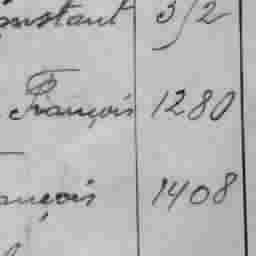 onstant 312
François 1280
ançois 1408